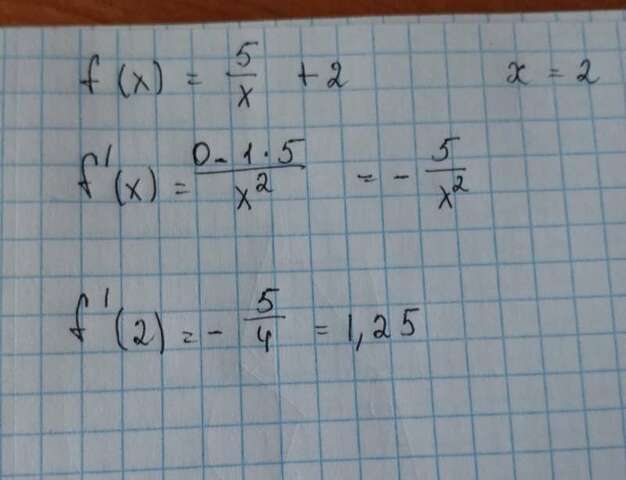 f(x) = 5/x + 2 x = 2
f'(x) = 0 - 1 · 5/x² = - 5/x²
f'(2) = - 5/4 = 1,25